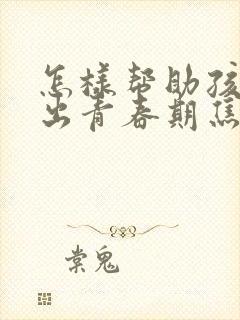 怎样帮助孩
出青春期焦
棠鬼